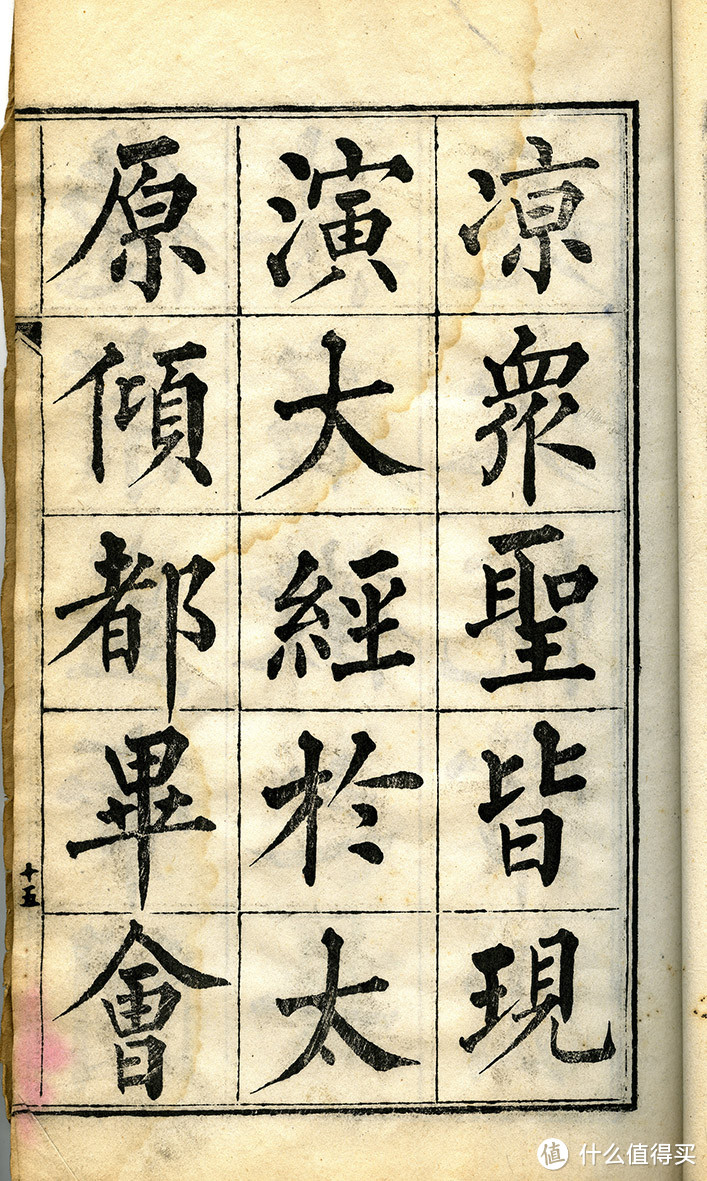 凉衆聖皆現
演大經於太
原傾都畢會
十五
值 什么值得买